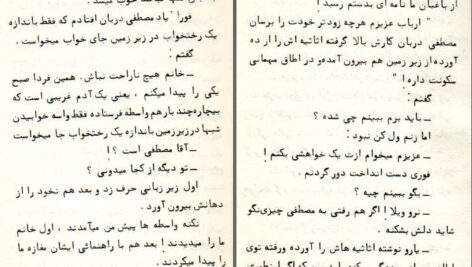 از باغبان ما نامه ای بدستم رسید !
" ارباب عزیزم هرچه زودتر خودت را برسان
مصطفی دربان کارش بالا گرفته اثاثیه اش را از ده
آورده از زیر زمین هم بیرون آمدهو در اطاق مهمانی
سکونت داره ! "
گفتم :
ـ باید برم ببینم چی شده ؟
اما زنم ول کن نبود :
ـ عزیزم میخوام ازت یک خواهشی بکنم !
فوری دست انداخت دور گردنم .
ـ بگو ببینم چیه ؟
ـ نرو ویلا ! اگر هم رفتی به مصطفی چیزی نگو
شاید دلش بشکنه .
ـ یارو نوشته اثاثیه هاش را آورده و رفته توی
فورا" یاد مصطفی دربان افتادم که فقط باندازه
یک رختخواب در زیر زمین جای خواب میخواست .
گفتم :
ـ خانم هیچ ناراحت نباش . همین فردا صبح
یکی را پیدا میکنم ، یعنی یک آدم غریبی است که
بیچاره چند بار هم واسطه فرستاده فقط واسه خوابیدن
شبها در زیر زمین باندازه یک رختخواب جا میخواست
ـ آقا مصطفی است ؟ !
ـ تو دیگه از کجا میدونی ؟
اول زیر زبانی حرف زد و بعد هم نخود را از
دهانش بیرون آورد .
نکنه واسطه ها پیش من میآمدند ، اول خانم
ما را میدیدند ! بعد هم با راهنمائی ایشان مغازه ما
را پیدا میکردند .